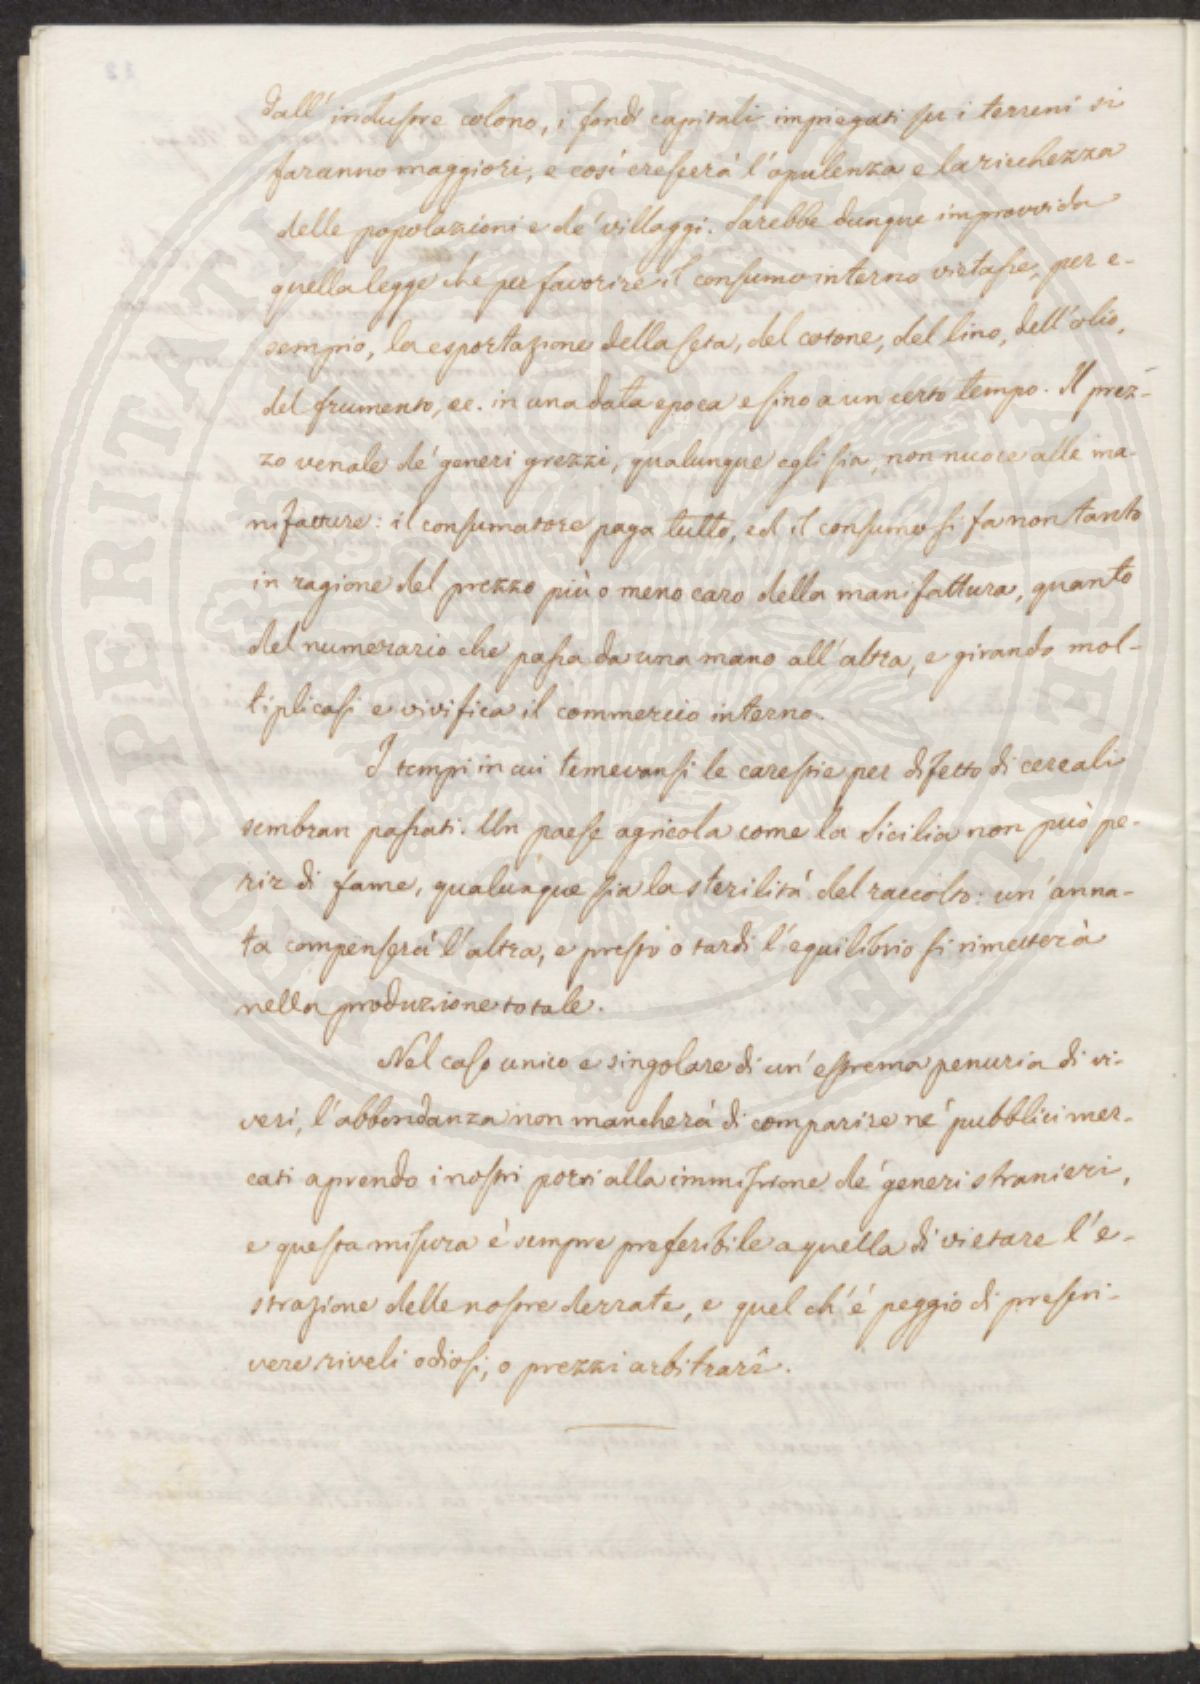 dall'industre colono, i fondi capitali impiegati su i terreni si
faranno maggiori, e così crescerà l'opulenza e la ricchezza
delle popolazioni e de' villaggi. Sarebbe dunque improvvida
quella legge che per favorire il consumo interno vietasse, per e-
sempio, la esportazione della seta, del cotone, del lino, dell'olio,
del frumento, ec. in una data epoca e sino a un certo tempo. Il prez-
zo venale de' generi grezzi, qualunque egli sia, non nuoce alle ma-
nifatture: il consumatore paga tutto, ed il consumo si fa non tanto
in ragione del prezzo più o meno caro della manifattura, quanto
del numerario che passa da una mano all'altra, e girando mol-
tiplicasi e vivifica il commercio interno.
I tempi in cui temevansi le carestie per difetto di cereali
sembran passati. Un paese agricola come la Sicilia non può pe-
rir di fame, qualunque sia la sterilità del raccolto: un'anna-
ta compenserà l'altra, e presto o tardi l'equilibrio si rimetterà
nella produzione totale.
Nel caso unico e singolare di un'estrema penuria di vi-
veri, l'abbondanza non mancherà di comparire ne' pubblici mer-
cati aprendo i nostri porti alla immissione de' generi stranieri,
e questa misura è sempre preferibile a quella di vietare l'e-
strazione delle nostre derrate, e quel ch'è peggio di prescri-
vere riveli odiosi, o prezzi arbitrarî.